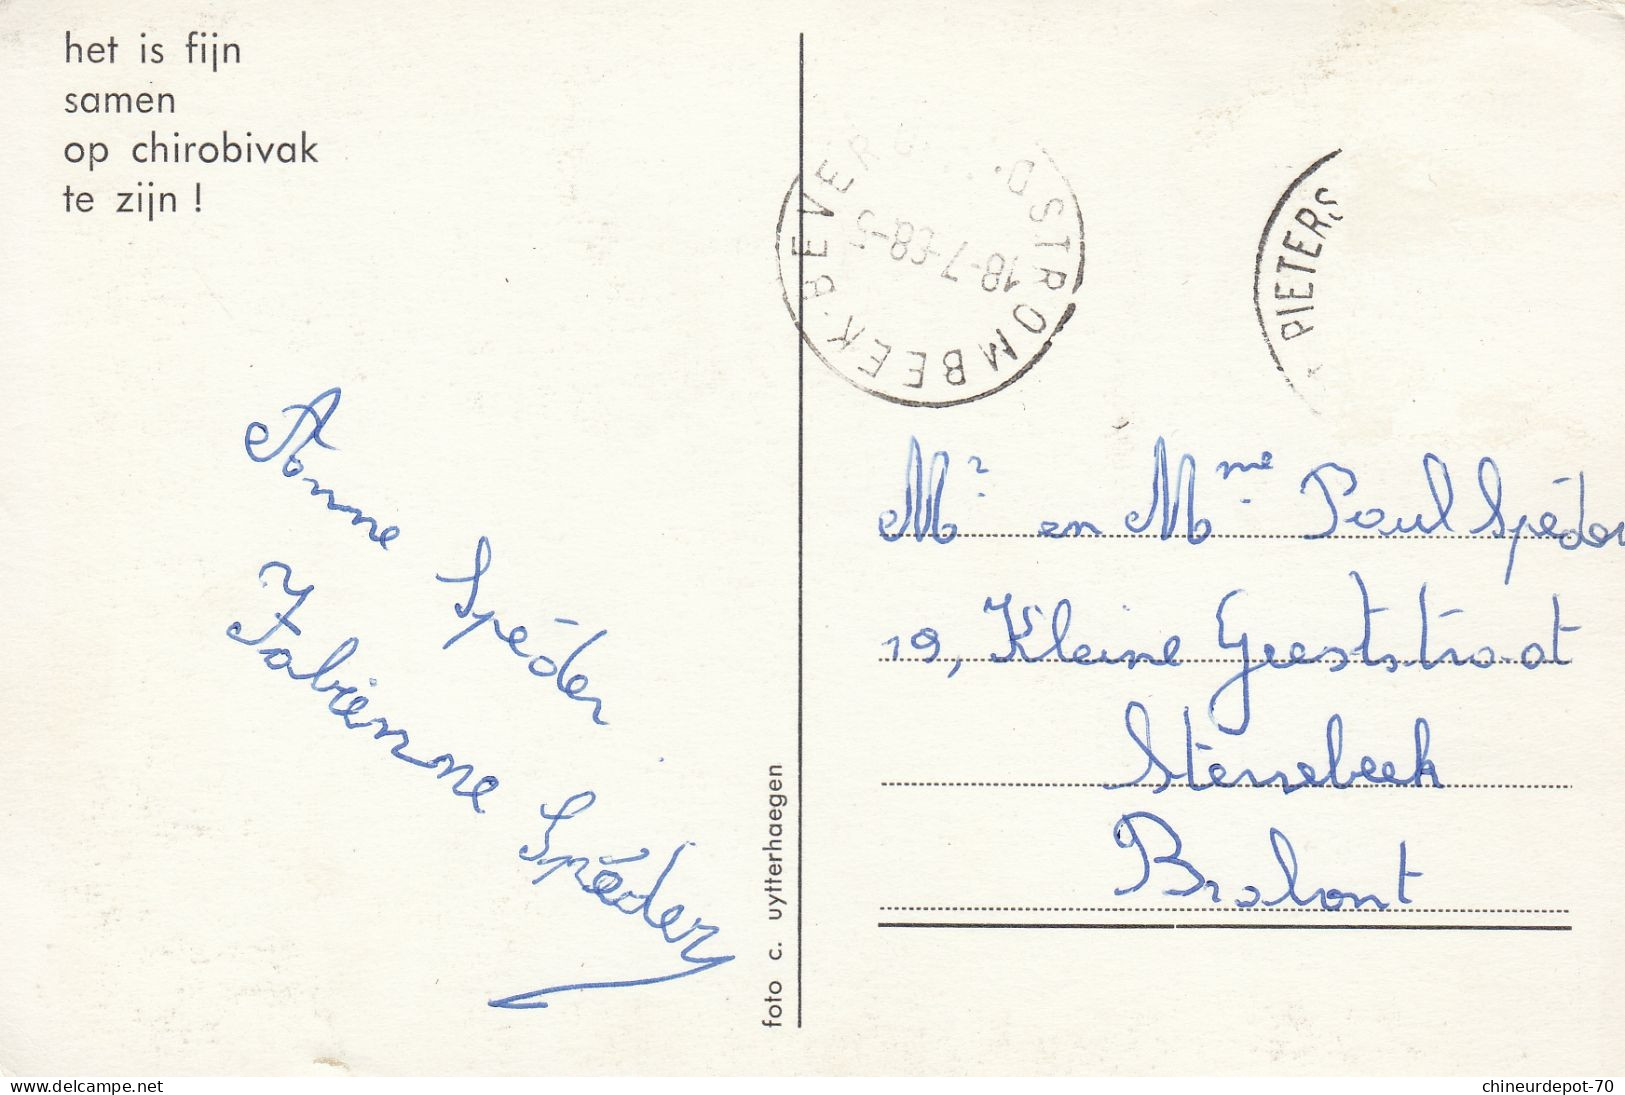 het is fijn
samen
op chirobivak
te zijn !
STROMBEEK-BEVER
D
18-7-68-5
PIETERS
Anne Spéder
Fabienne Spéder
foto c. uytterhaegen
Mr en Mme Paul Spéder
19, Kleine Geeststraat
Sterrebeek
Brabant
delcampe.net
chineurdepot-70